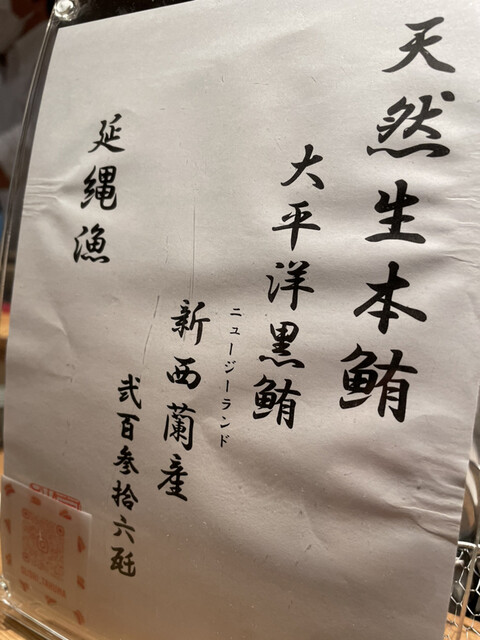 天然生本鮪
大平洋黒鮪
ニュージーランド
新西蘭産
弐百参拾六瓩
延縄漁